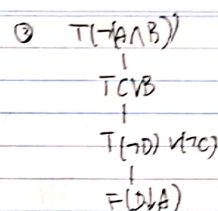 ② T(¬(A∧B))
T C∨B
T(¬D) ∨(¬C)
F(D∨A)